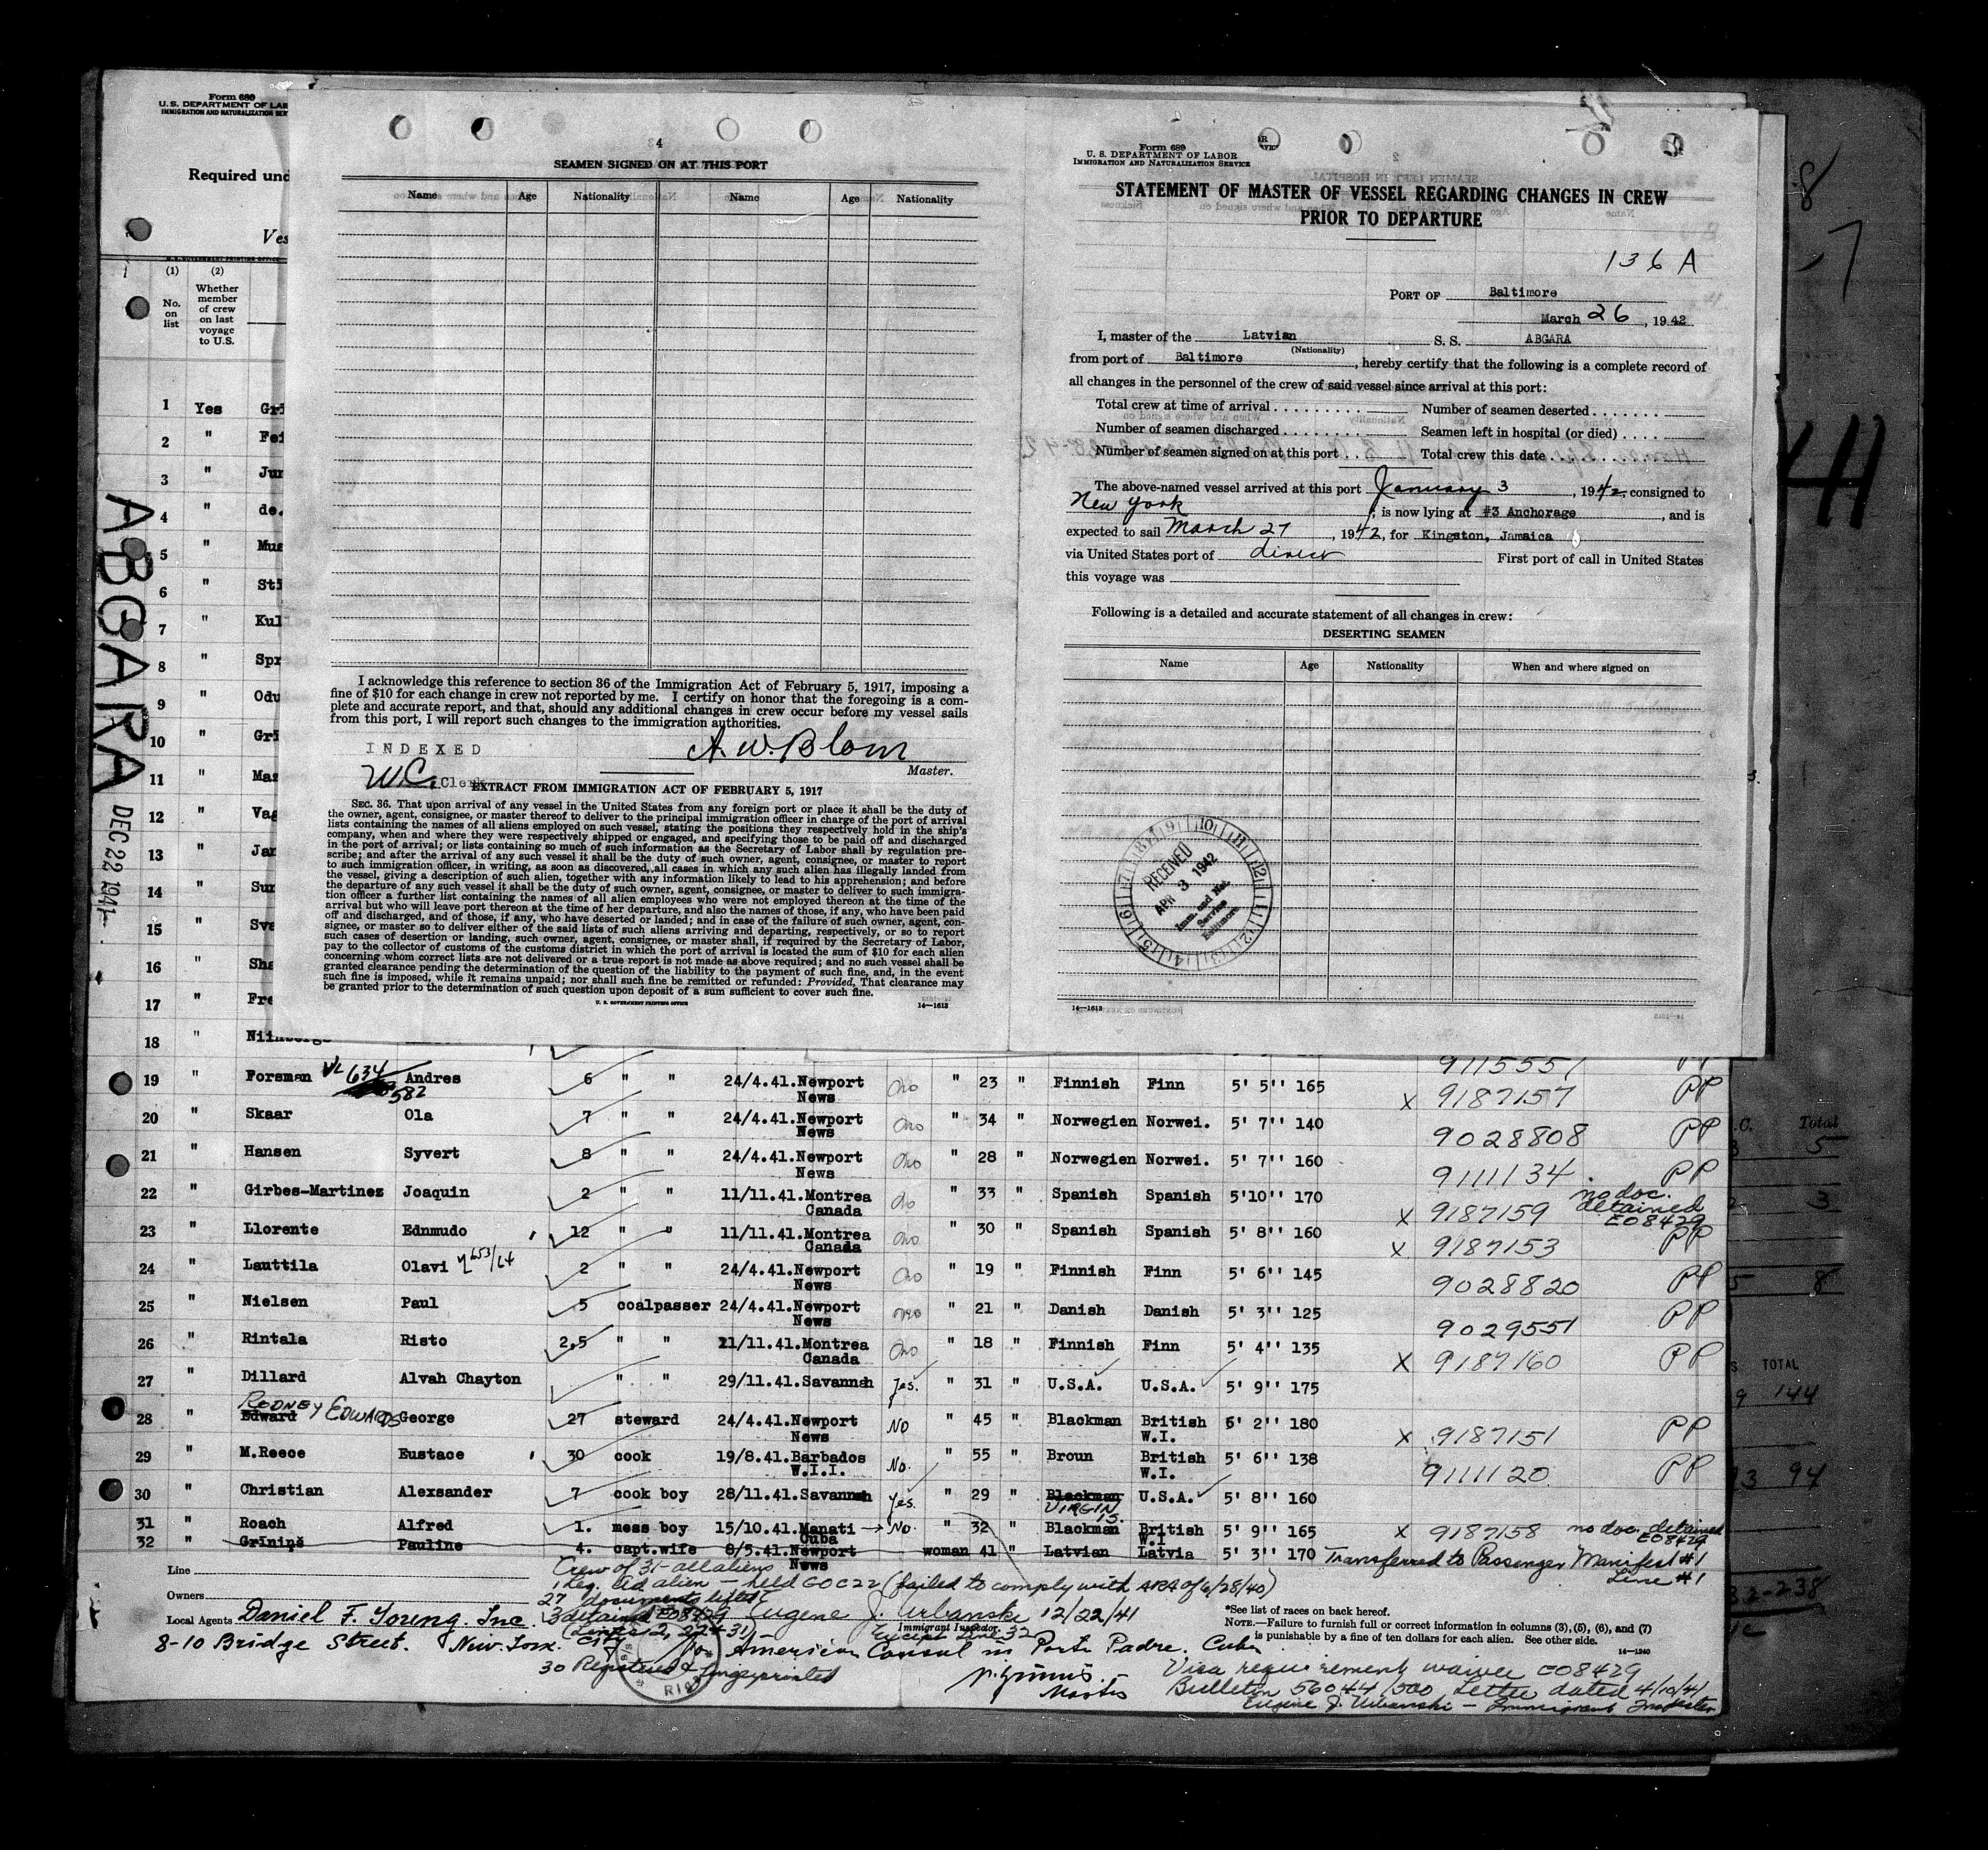 Form 689
U.S. DEPARTMENT OF LAB
IMMIGRATION AND NATURALIZATION SER
Required und
Ves
(1) (2)
No. on list
Whether member of crew on last voyage to U.S.
1 Yes Gri
2 " Fei
3 " Jur
4 " de.
5 " Mus
6 " Sti
7 " Kul
8 " Spr
9 " Odu
10 " Gri
11 " Maz
12 " Vag
13 " Jar
14 " Sur
15 " Sve
16 " Sha
17 " Fre
18 "
ABGARA
DEC 22 1941
4
SEAMEN SIGNED ON AT THIS PORT
Name Age Nationality Name Age Nationality
I acknowledge this reference to section 36 of the Immigration Act of February 5, 1917, imposing a
fine of $10 for each change in crew not reported by me. I certify on honor that the foregoing is a com-
plete and accurate report, and that, should any additional changes in crew occur before my vessel sails
from this port, I will report such changes to the immigration authorities.
INDEXED
A. W. Blom
Master.
W.C. Clerk
EXTRACT FROM IMMIGRATION ACT OF FEBRUARY 5, 1917
SEC. 36. That upon arrival of any vessel in the United States from any foreign port or place it shall be the duty of
the owner, agent, consignee, or master thereof to deliver to the principal immigration officer in charge of the port of arrival
lists containing the names of all aliens employed on such vessel, stating the positions they respectively hold in the ship's
company, when and where they were respectively shipped or engaged, and specifying those to be paid off and discharged
in the port of arrival; or lists containing so much of such information as the Secretary of Labor shall by regulation pre-
scribe; and after the arrival of any such vessel it shall be the duty of such owner, agent, consignee, or master to report
to such immigration officer, in writing, as soon as discovered, all cases in which any such alien has illegally landed from
the vessel, giving a description of such alien, together with any information likely to lead to his apprehension; and before
the departure of any such vessel it shall be the duty of such owner, agent, consignee, or master to deliver to such immigra-
tion officer a further list containing the names of all alien employees who were not employed thereon at the time of the
arrival but who will leave port thereon at the time of her departure, and also the names of those, if any, who have been paid
off and discharged, and of those, if any, who have deserted or landed; and in case of the failure of such owner, agent, con-
signee, or master so to deliver either of the said lists of such aliens arriving and departing, respectively, or so to report
such cases of desertion or landing, such owner, agent, consignee, or master shall, if required by the Secretary of Labor,
pay to the collector of customs of the customs district in which the port of arrival is located the sum of $10 for each alien
concerning whom correct lists are not delivered or a true report is not made as above required; and no such vessel shall be
granted clearance pending the determination of the question of the liability to the payment of such fine, and, in the event
such fine is imposed, while it remains unpaid; nor shall such fine be remitted or refunded: Provided, That clearance may
be granted prior to the determination of such question upon deposit of a sum sufficient to cover such fine.
U. S. GOVERNMENT PRINTING OFFICE 14—1613
Form 689
U. S. DEPARTMENT OF LABOR
IMMIGRATION AND NATURALIZATION SERVICE
STATEMENT OF MASTER OF VESSEL REGARDING CHANGES IN CREW
PRIOR TO DEPARTURE
136 A
PORT OF Baltimore
March 26, 1942
I, master of the Latvian S. S. ABGARA
(Nationality)
from port of Baltimore, hereby certify that the following is a complete record of
all changes in the personnel of the crew of said vessel since arrival at this port:
Total crew at time of arrival Number of seamen deserted
Number of seamen discharged Seamen left in hospital (or died)
Number of seamen signed on at this port Total crew this date
The above-named vessel arrived at this port January 3, 1942, consigned to
New York; is now lying at #3 Anchorage, and is
expected to sail March 27, 1942, for Kingston, Jamaica
via United States port of direct First port of call in United States
this voyage was
Following is a detailed and accurate statement of all changes in crew:
DESERTING SEAMEN
Name Age Nationality When and where signed on
RECEIVED
APR 3 1942
Imm. and Nat.
Service
Baltimore
14—1613
9115551 PP
19 " Forsman VL 634 582 Andres 6 " " 24/4.41.Newport News No " 23 " Finnish Finn 5' 5'' 165 x 9187157 PP
20 " Skaar Ola 7 " " 24/4.41.Newport News No " 34 " Norwegien Norwei. 5' 7'' 140 9028808 PP
21 " Hansen Syvert 8 " " 24/4.41.Newport News No " 28 " Norwegien Norwei. 5' 7'' 160 9111134 PP
22 " Girbes-Martinez Joaquin 2 " " 11/11.41.Montrea Canada No " 33 " Spanish Spanish 5'10'' 170 x 9187159 no doc. detained E08429
23 " Llorente Ednmudo 12 " " 11/11.41.Montrea Canada No " 30 " Spanish Spanish 5' 8'' 160 x 9187153 PP
24 " Lauttila Olavi 2 " " 24/4.41.Newport News No " 19 " Finnish Finn 5' 6'' 145 9028820 PP
25 " Nielsen Paul 5 coalpasser 24/4.41.Newport News No " 21 " Danish Danish 5' 3'' 125 9029551 PP
26 " Rintala Risto 2,5 " " 11/11.41.Montrea Canada No " 18 " Finnish Finn 5' 4'' 135 x 9187160 PP
27 " Dillard Alvah Chayton " " 29/11.41.Savannah Yes. " 31 " U.S.A. U.S.A. 5' 9'' 175
28 " Edward RODNEY EDWARDS George 27 steward 24/4.41.Newport News NO " 45 " Blackman British W.I. 6' 2'' 180 x 9187151 PP
29 " M.Reece Eustace 30 cook 19/8.41.Barbados W.I.I. No. " 55 " Broun British W.I. 5' 6'' 138 9111120 PP
30 " Christian Alexsander 7 cook boy 28/11.41.Savannah Yes. " 29 " Blackman VIRGIN IS. U.S.A. 5' 8'' 160
31 " Roach Alfred 1. mess boy 15/10.41.Manati Cuba No. " 32 " Blackman British W.I 5' 9'' 165 x 9187158 no doc. detained E08429
32 " Grīniņš Pauline 4. capt.wife 8/5.41.Newport News woman 41 " Latvian Latvia 5' 3'' 170 Transferred to Passenger Manifest #1 Line #1
Line
Crew of 31- all aliens
held GOC22 (failed to comply with ARA of 6/28/40)
Owners
27 documents lifted
Local Agents Daniel F. Young. Inc.
3 detained E08429
Eugene J. Urbanski 12/22/41
Immigrant Inspector.
Except Line 32
8-10 Bridge Street. New York City
for American Consul in Porto Padre. Cuba
30 Registered & fingerprinted
Master
*See list of races on back hereof.
NOTE.—Failure to furnish full or correct information in columns (3), (5), (6), and (7)
is punishable by a fine of ten dollars for each alien. See other side.
14—1240
Visa requirements waived E08429
Bulletin 56044/500 Letter dated 4/10/41
Eugene J. Urbanski - Immigrant Inspector
Total
5
3
8
TOTAL
144
94